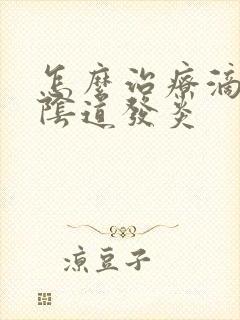 怎麼治療滴
陰道發炎
涼豆子